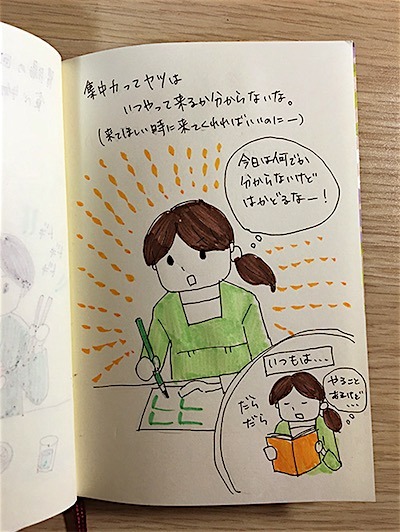 集中力ってヤツは
いつやって来るか分からないな。
(来てほしい時に来てくれればいいのにー)
今日は何でか
分からないけど
はかどるなー!
いつもは...
やること
あるけど
...
だら
だら